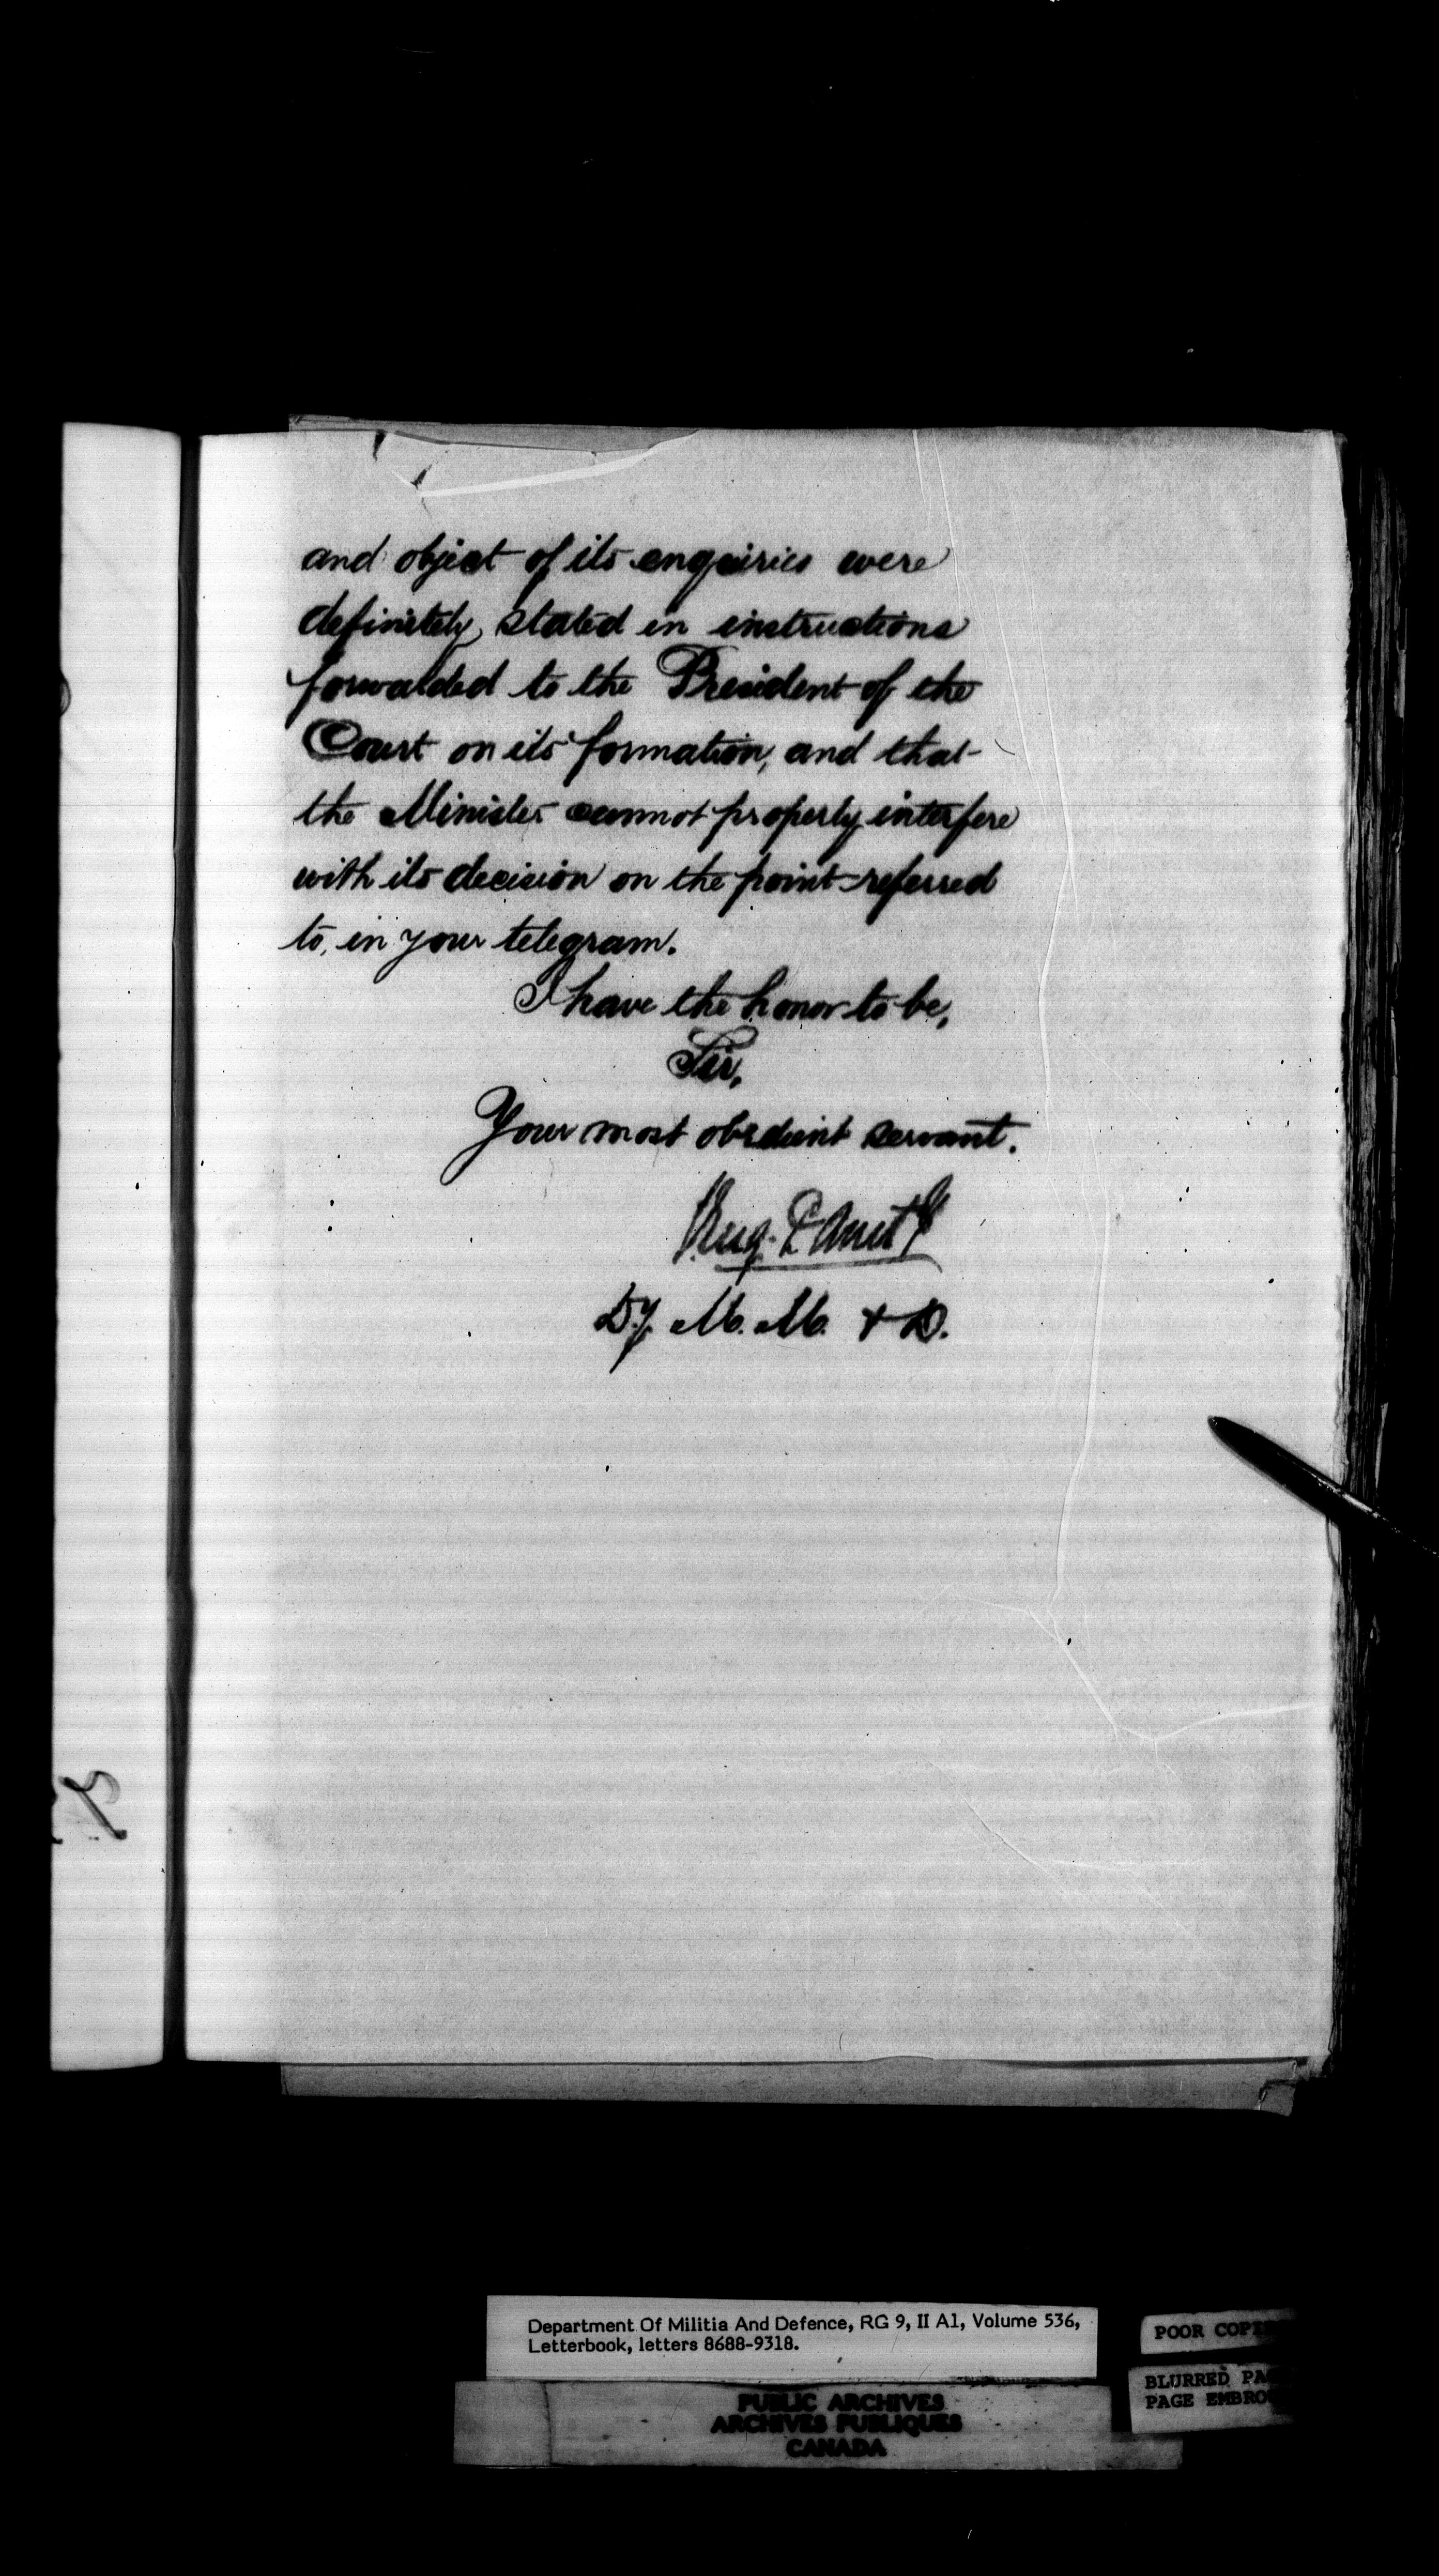 and object of its enquiries were
definitely stated in instructions
forwarded to the President of the
Court on its formation, and that
the Minister cannot properly interfere
with its decision on the point referred
to, in your telegram.
I have the honor to be,
Sir,
Your most obedient servant.
Eug. Panet
Dy. M. M. & D.
Department Of Militia And Defence, RG 9, II A1, Volume 536,
Letterbook, letters 8688-9318.
POOR COPI
BLURRED PA
PAGE EMBRO
PUBLIC ARCHIVES
ARCHIVES PUBLIQUES
CANADA